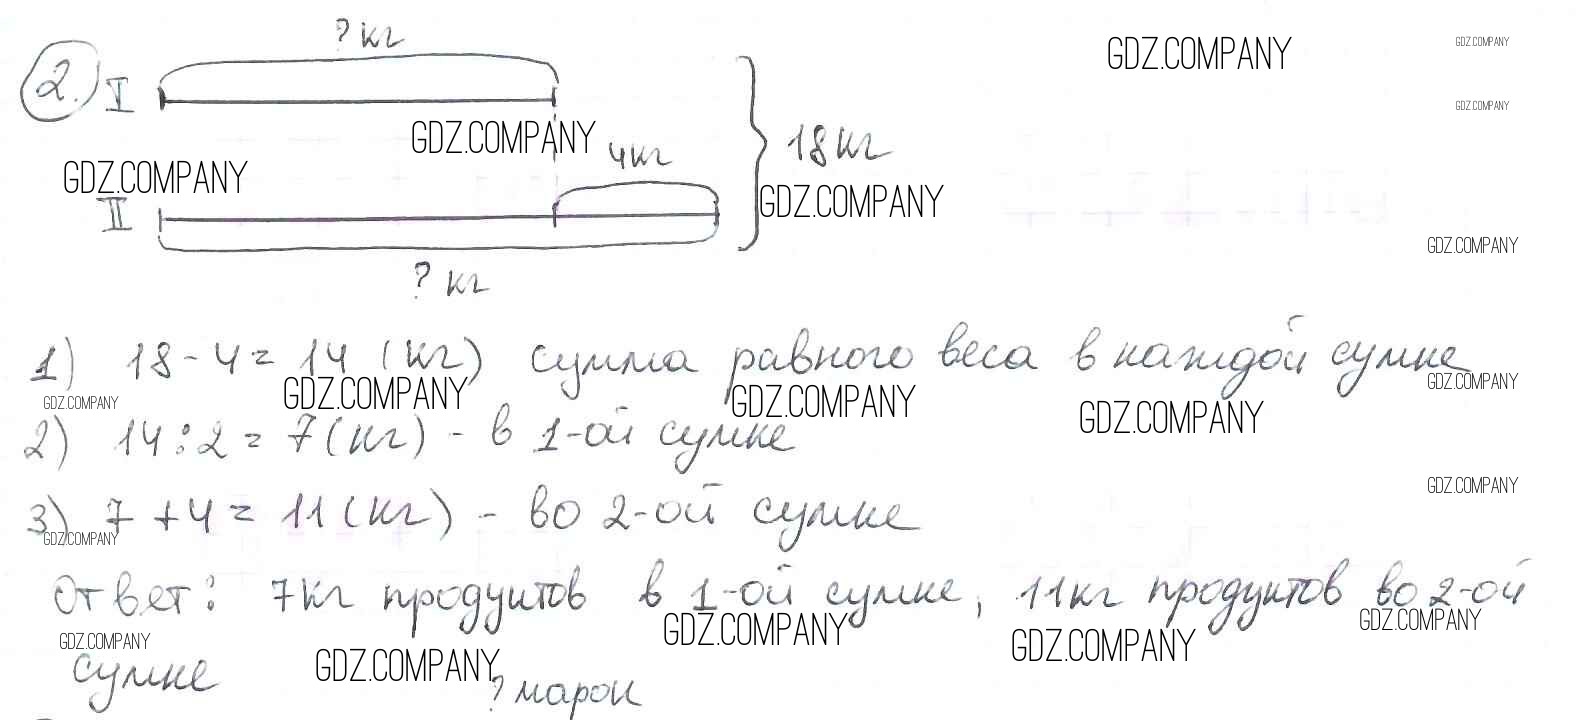 ? кг
2. I
GDZ.COMPANY
GDZ.COMPANY
GDZ.COMPANY
GDZ.COMPANY
4кг
18кг
GDZ.COMPANY
II
GDZ.COMPANY
GDZ.COMPANY
? кг
1) 18 - 4 = 14 (кг) сумма равного веса в каждой сумке
GDZ.COMPANY
GDZ.COMPANY
GDZ.COMPANY
GDZ.COMPANY
GDZ.COMPANY
2) 14 : 2 = 7 (кг) - в 1-ой сумке
GDZ.COMPANY
3) 7 + 4 = 11 (кг) - во 2-ой сумке
GDZ.COMPANY
Ответ: 7кг продуктов в 1-ой сумке, 11кг продуктов во 2-ой
GDZ.COMPANY
GDZ.COMPANY
GDZ.COMPANY
GDZ.COMPANY
сумке
GDZ.COMPANY
? марок